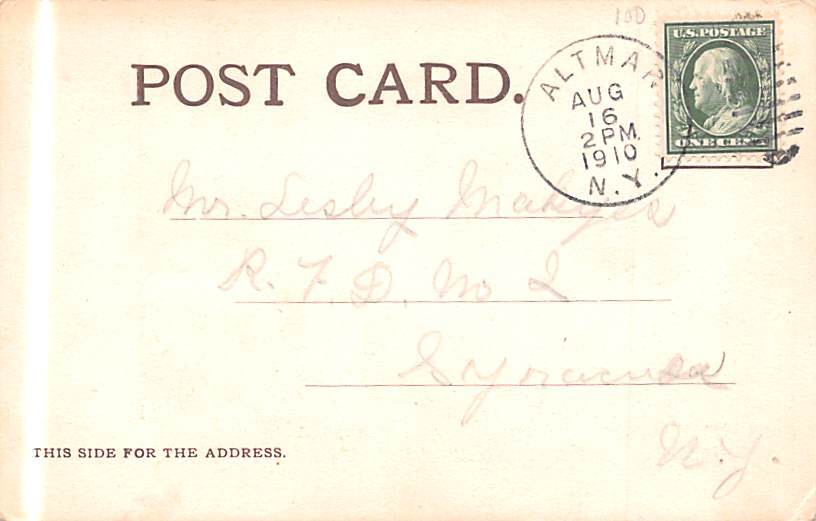 100
U.S. POSTAGE
ONE CENT
POST CARD.
ALTMAR
AUG
16
2 PM
1910
N.Y.
Mr. Lesby
R. F. D. No 2
Syracuse
N.Y.
THIS SIDE FOR THE ADDRESS.